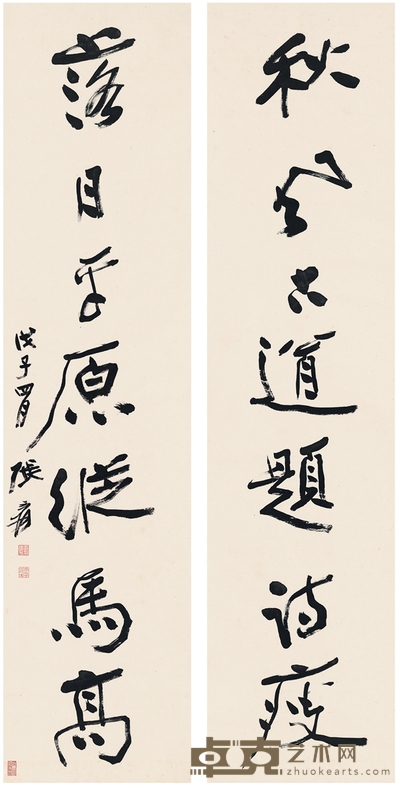 秋風古道題詩瘦
落日平原縱馬高
戊子四月 張爰
卓克艺术网
zhuokearts.com